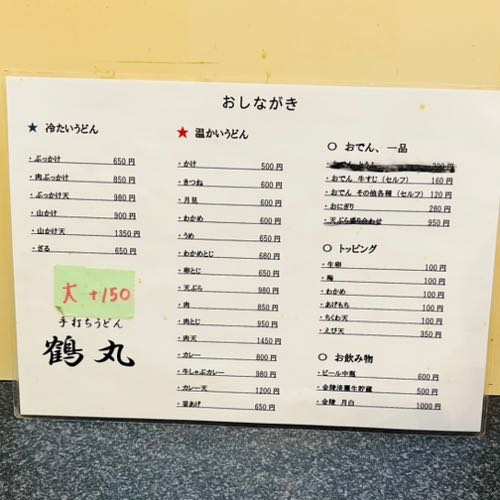 おしながき
★ 冷たいうどん
・ぶっかけ 650円
・肉ぶっかけ 850円
・ぶっかけ天 980円
・山かけ 900円
・山かけ天 1350円
・ざる 650円
大 +150
手打ちうどん
鶴丸
★ 温かいうどん
・かけ 500円
・きつね 600円
・月見 600円
・わかめ 600円
・うめ 650円
・わかめとじ 680円
・卵とじ 650円
・天ぷら 980円
・肉 850円
・肉とじ 950円
・肉天 1450円
・カレー 800円
・牛しゃぶカレー 980円
・カレー天 1200円
・釜あげ 650円
○ おでん、一品
・おでん 牛すじ（セルフ） 160円
・おでん その他各種（セルフ） 120円
・おにぎり 280円
・天ぷら盛り合わせ 950円
○ トッピング
・生卵 100円
・梅 100円
・わかめ 100円
・あげもち 100円
・ちくわ天 100円
・えび天 350円
○ お飲み物
・ビール中瓶 600円
・金陵淡麗生貯蔵 500円
・金陵 月白 1000円